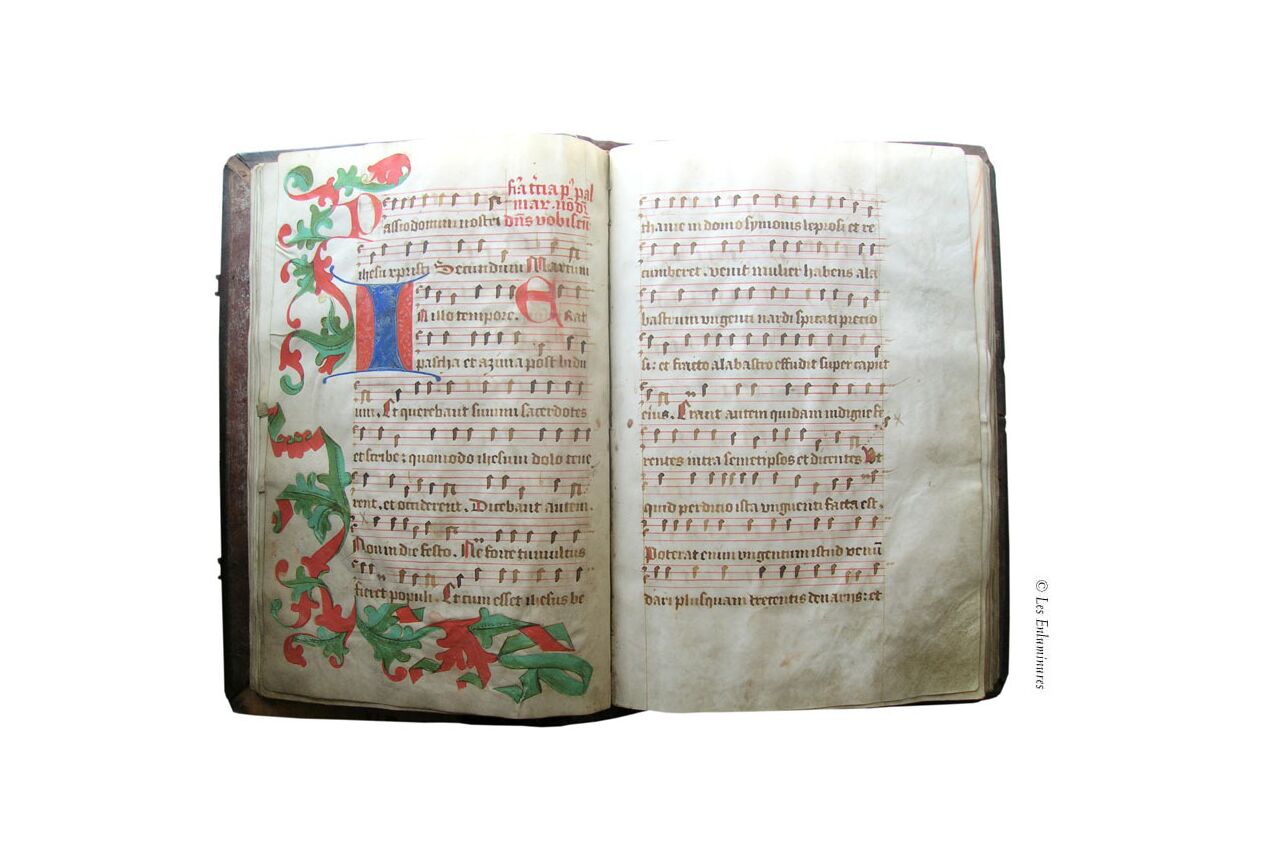 fia t̄cia p' pal
mar. nō dr̄
Passio domini nostri dn̄s vobiscū
ihesu xpisti Secundum Marcum
In illo tempore. Erat
pascha et azima post bidu
um. Et querebant summi sacerdotes
et scribe: quomodo ihesum dolo tene
rent, et occiderent. Dicebant autem.
Non in die festo. Ne forte tumultus
fieret populi. Et cum esset ihesus be
thanie in domo symonis leprosi et re
cumberet. venit mulier habens ala
bastrum vngenti nardi spicati precio
si: et fracto alabastro effudit super caput
eius. Erant autem quidam indigne fe
rentes intra semetipsos et dicentes Vt
quid perditio ista vngenti facta est.
Poterat enim vngentum istud venū
dari plusquam trecentis denarijs: et
© Les Enluminures